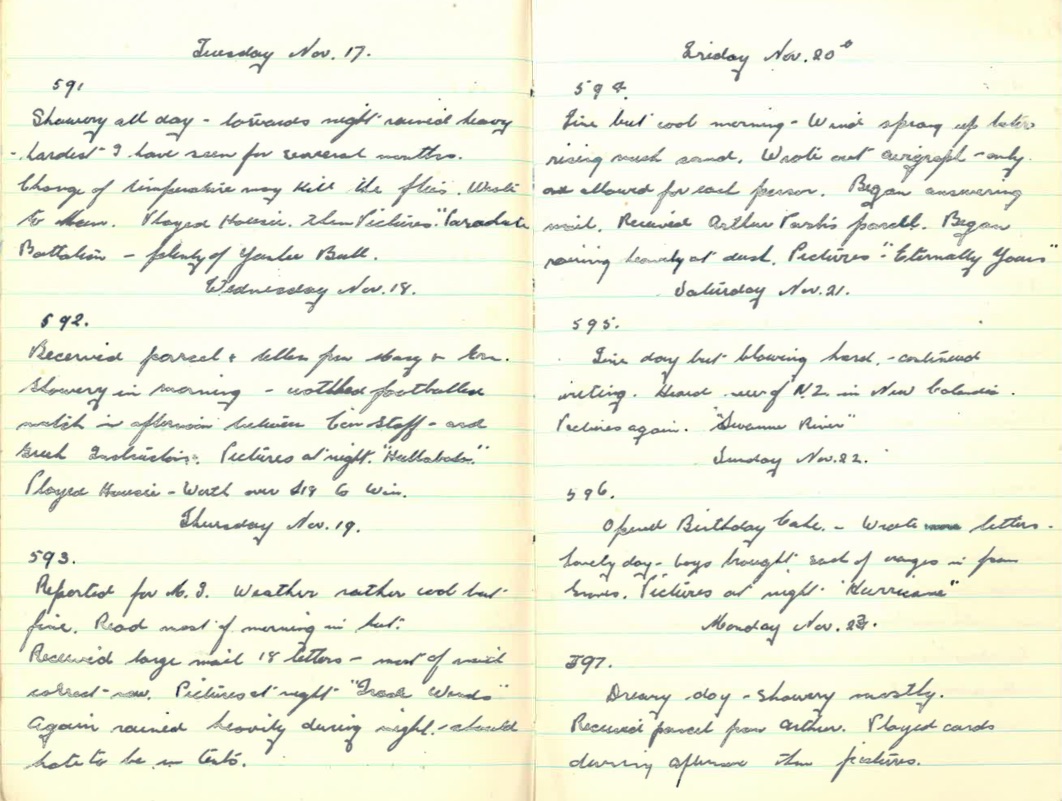 Tuesday Nov. 17.
591
Showery all day - towards night rained heavy
- hardest I have seen for several months.
Change of temperature may kill the flies. Wrote
to Mum. Played Housie. then Pictures. "Parachute
Battalion - plenty of Yankee Bull.
Wednesday Nov. 18.
592.
Received parcel & letter from Mary &
Showery in morning - watched footballed
match in afternoon between Staff - and
Instructors. Pictures at night. "Hullabaloo."
Played Housie - Worth over £18 to win.
Thursday Nov. 19.
593.
Reported for M. I. Weather rather cool but
fine. Read most of morning in hut.
Received large mail 18 letters - most of mail
correct now. Pictures at night
Again rained heavily during night. - should
hate to be in tents.
Friday Nov. 20th
594.
Fine but cool morning - Wind sprang up later
rising much sand. Wrote out airgraph - only
one allowed for each person. Began answering
mail. Received Arthur parcel. Began
raining heavily at dusk. Pictures - "Eternally Yours"
Saturday Nov. 21.
595.
Fine day but blowing hard. - continued
writing. Heard news of N.Z. in New Caledonia.
Pictures again. "Swanne River"
Sunday Nov. 22.
596.
Opened Birthday Cake. - Wrote letters -
Lovely day - boys brought sack of oranges in from
Groves. Pictures at night "Hurricane"
Monday Nov. 23.
597.
Dreary day - showery mostly.
Received parcel from Arthur. Played cards
during afternoon then pictures.